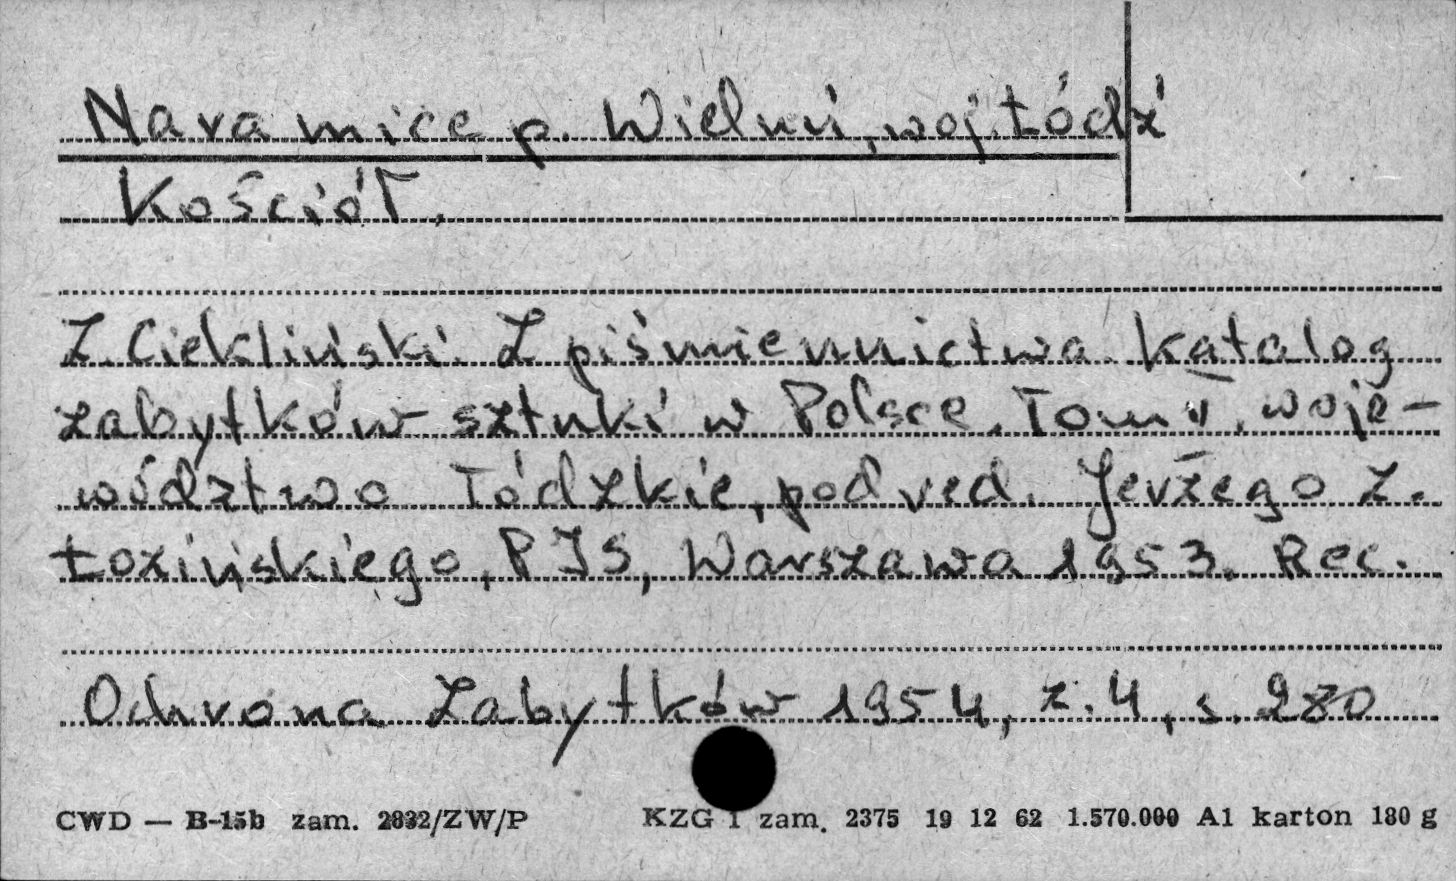 Naramice p. Wieluń, woj. Łódź
Kościół.
Z. Ciekliński. Z piśmiennictwa. Katalog
zabytków sztuki w Polsce. Tom II. woje-
wództwo łódzkie, pod red. Jerzego Z.
Łozińskiego, PIS, Warszawa 1953. Rec.
Ochrona Zabytków 1954, z. 4, s. 280
CWD — B-15b zam. 2832/ZW/P KZG 1 zam. 2375 19 12 62 1.570.000 A1 karton 180 g